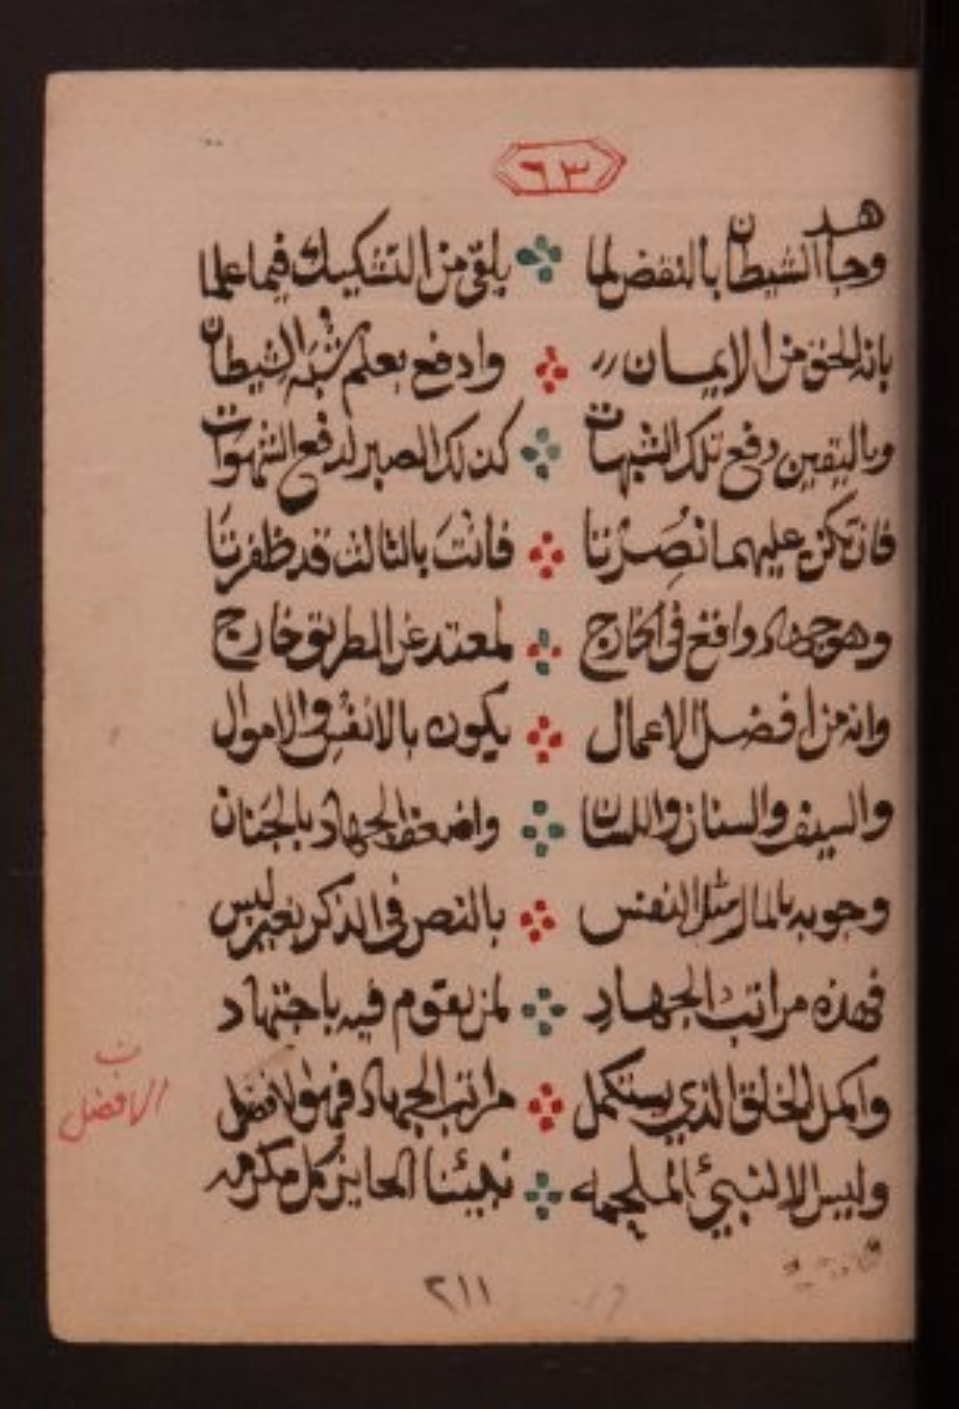 ٦٣
وجاهد الشيطان بالنقض لما يلقي من التشكيك فيما علما
بانه الحق من الايمان وادفع بعلم شبه الشيطان
وباليقين دفع تلك الشبهات كذلك الصبر لدفع الشهوات
فان تكن عليهما نُصِرْتا فانتَ بالثالث قد ظفرتَا
وهو جهاد واقع في الخارج لمعتد عن الطريق خارج
وانه من افضل الاعمال يكون بالانفس والاموال
والسيف والسنان واللسان واضعف الجهاد بالجَنان
وجوبه بالمال مثل النفس بالنص في الذكر بغير لبس
فهذه مراتب الجهادِ لمن يقوم فيه باجتهاد
واكمل الخلق الذي يستكمل مراتب الجهاد فهو الافضل
ن
الافضل
وليس الا النبيُ نبينا الحايز كل مكرمه
٢١١